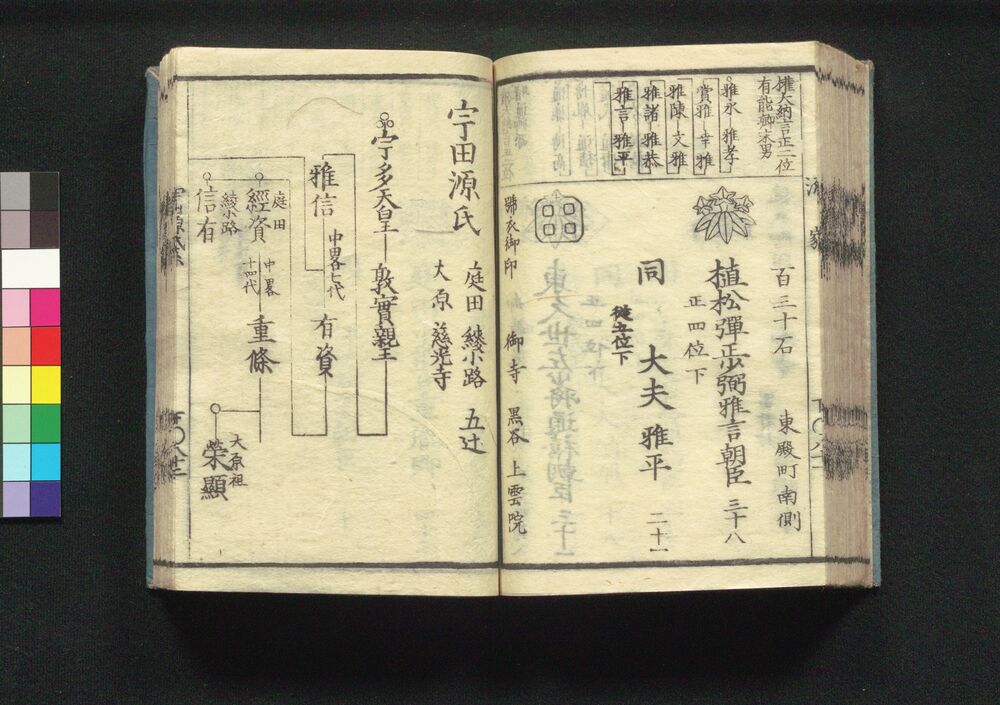 権大納言正二位
有能卿末男
雅永 雅孝
賞雅 幸雅
雅陳 文雅
雅諸 雅恭
雅言 雅平
百三十石 東殿町南側
植松彈正少弼雅言朝臣 三十八
正四位下
同 大夫雅平 二十一
従五位下
御寺 黒谷 上雲院
宇田源氏
庭田 綾小路 五辻
大原 慈光寺
宇多天皇 敦實親王
雅信 中畧七代 有資
庭田
經資 中畧十四代 重條
綾小路
信有
大原祖
榮顯